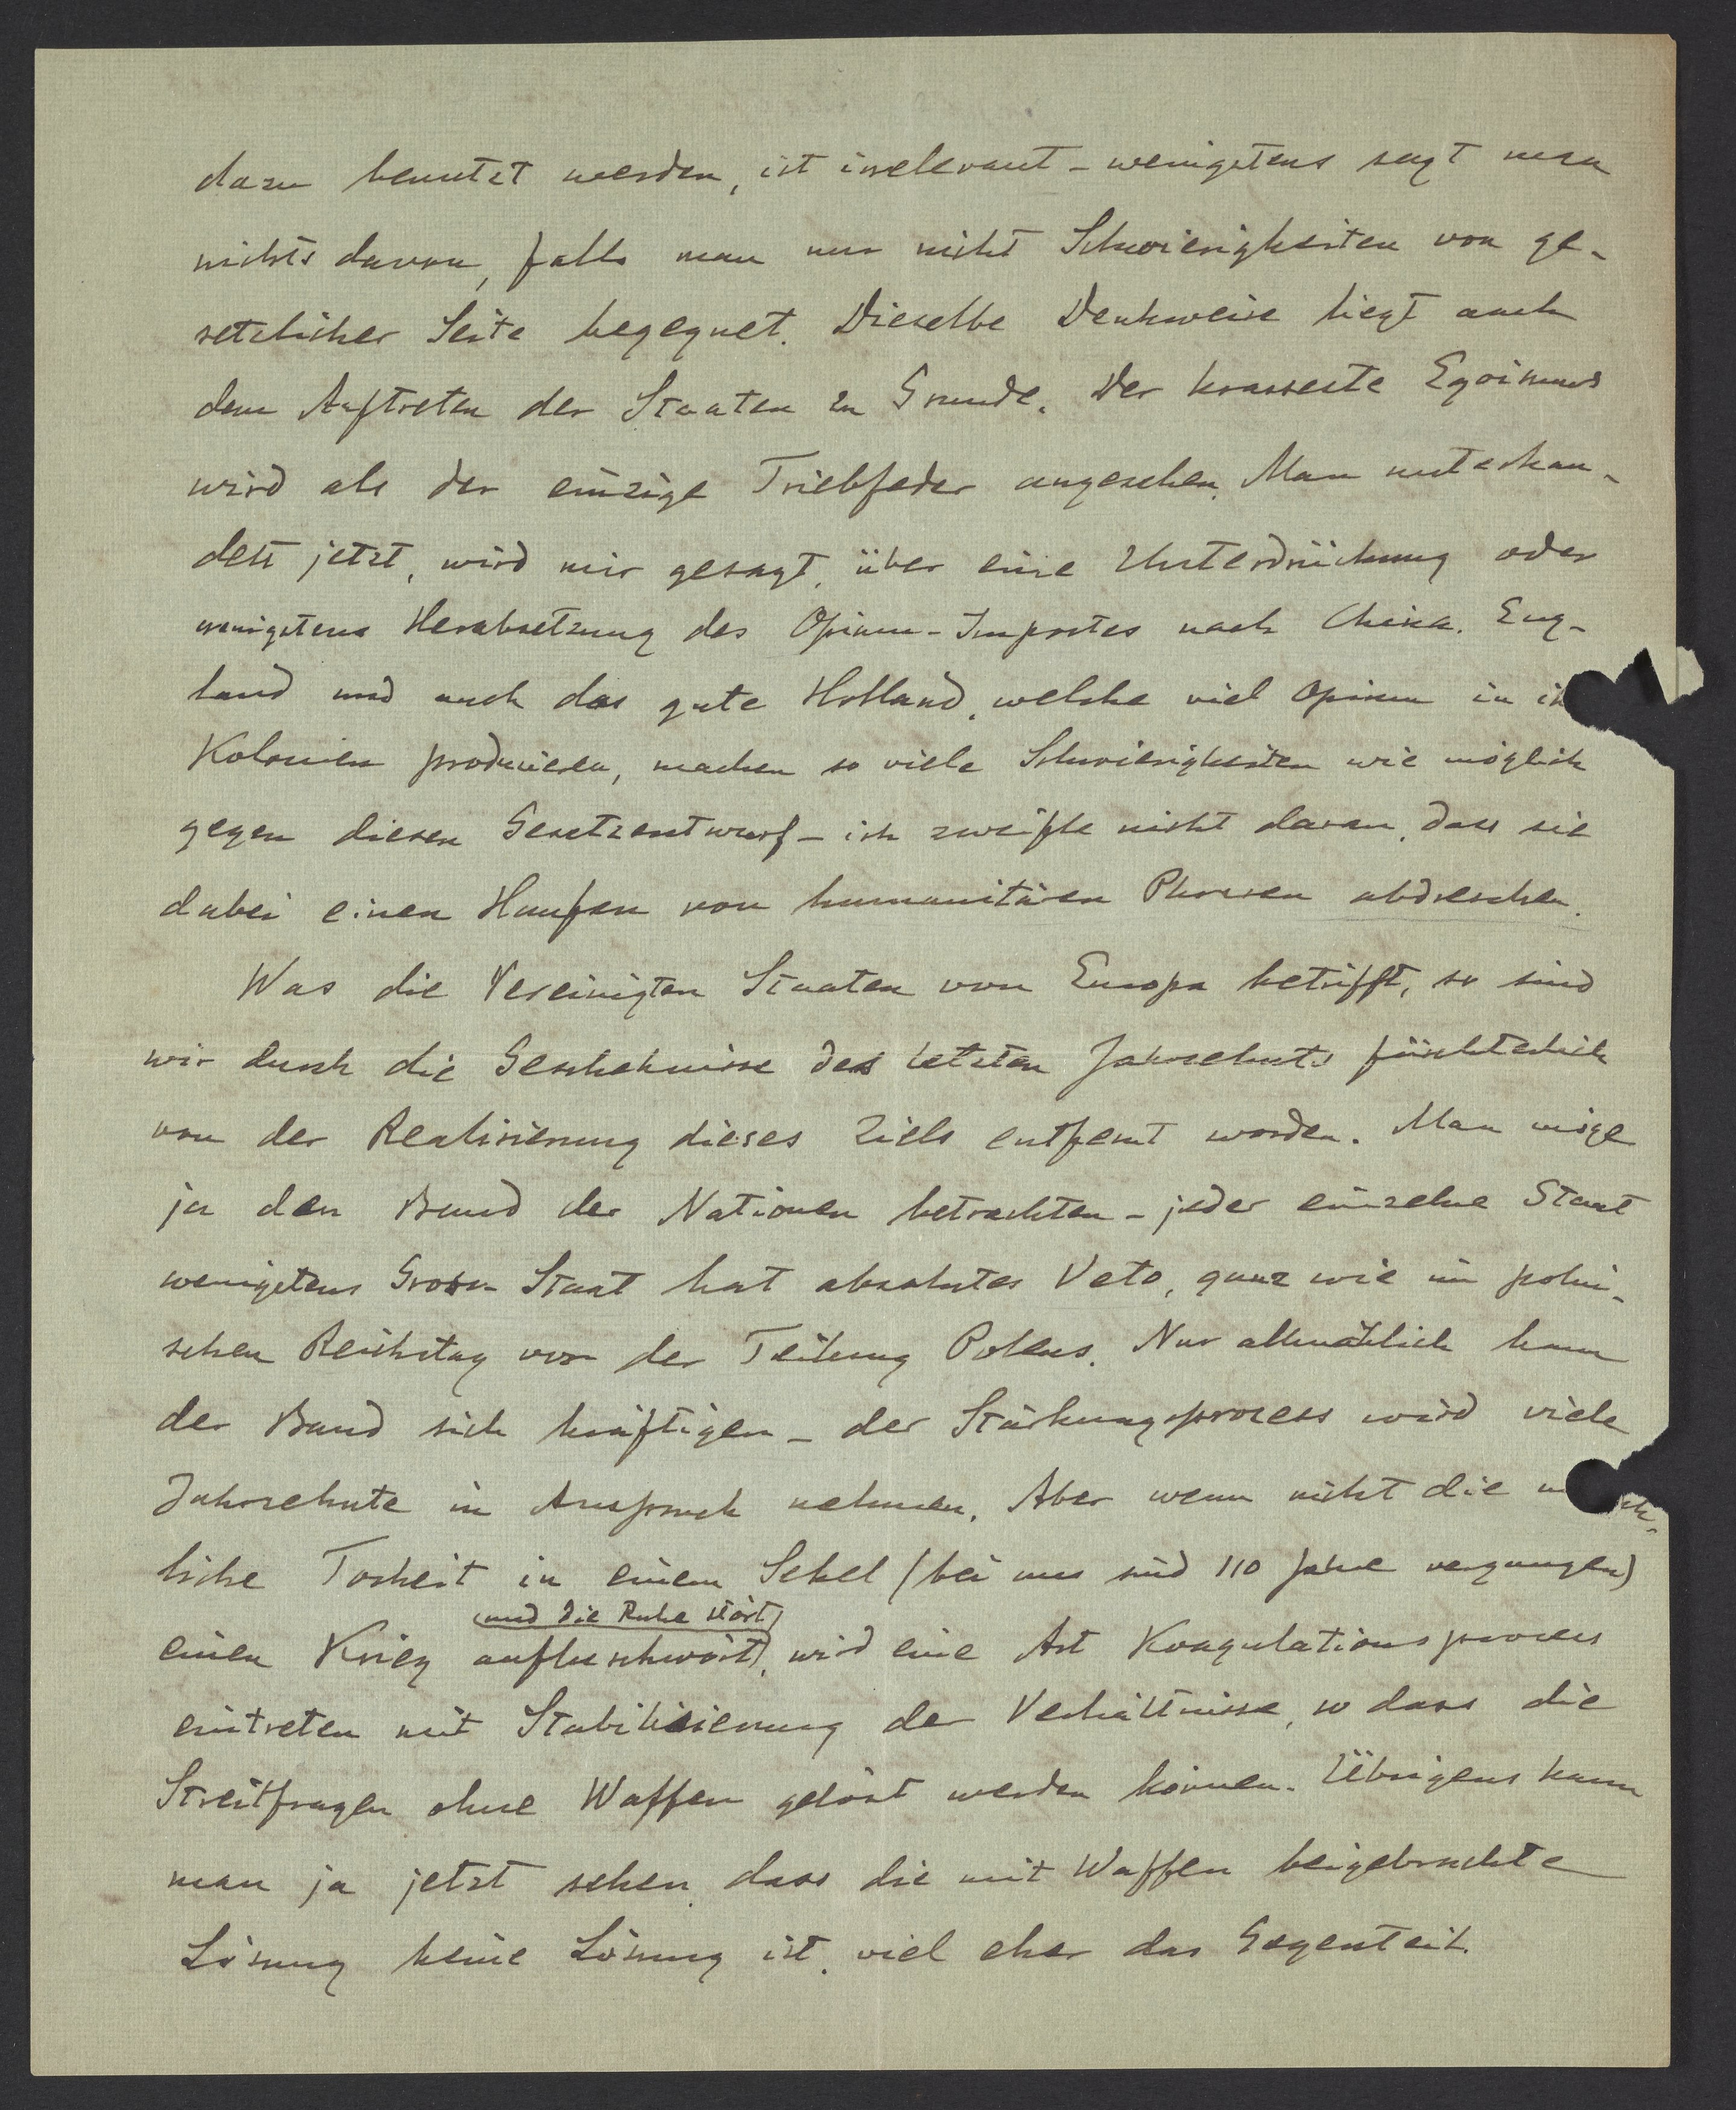 dazu benutzt werden, ist irrelevant - wenigstens sagt man
nichts davon, falls man nur nicht Schwierigkeiten von ge-
setzlicher Seite begegnet. Dieselbe Denkweise liegt auch
dem Auftreten der Staaten zu Grunde. Der krasseste Egoismus
wird als der einzige Triebfeder angesehen. Man unterhan-
delt jetzt, wird mir gesagt, über eine Unterdrückung oder
wenigstens Herabsetzung des Opium-Importes nach China. Eng-
land und auch das gute Holland, welche viel Opium in
Kolonien produzieren, machen so viele Schwierigkeiten wie möglich
gegen diesen Gesetzentwurf - ich zweifle nicht daran, dass sie
dabei einen Haufen von humanitären Phrasen abdreschen.
Was die Vereinigten Staaten von Europa betrifft, so sind
wir durch die Geschehnisse des letzten Jahrzehnts fürchterlich
von der Realisierung dieses Ziels entfernt worden. Man möge
ja den Bund der Nationen betrachten - jeder einzelne Staat
wenigstens Gross-Staat hat absolutes Veto, ganz wie im polni-
schen Reichstag vor der Teilung Polens. Nur allmählich kann
der Bund sich kräftigen - der Stärkungsprozess wird viele
Jahrzehnte in Anspruch nehmen. Aber wenn nicht die
liche Torheit in einem Sekel (bei uns sind 110 Jahre vergangen)
und die Ruhe stört
einen Krieg aufbeschwört, wird eine Art Koagulationsprocess
eintreten mit Stabilisierung der Verhältnisse, so dass die
Streitfragen ohne Waffen gelöst werden können. Übrigens kann
man ja jetzt sehen, dass die mit Waffen beigebrachte
Lösung keine Lösung ist, viel eher das Gegenteil.